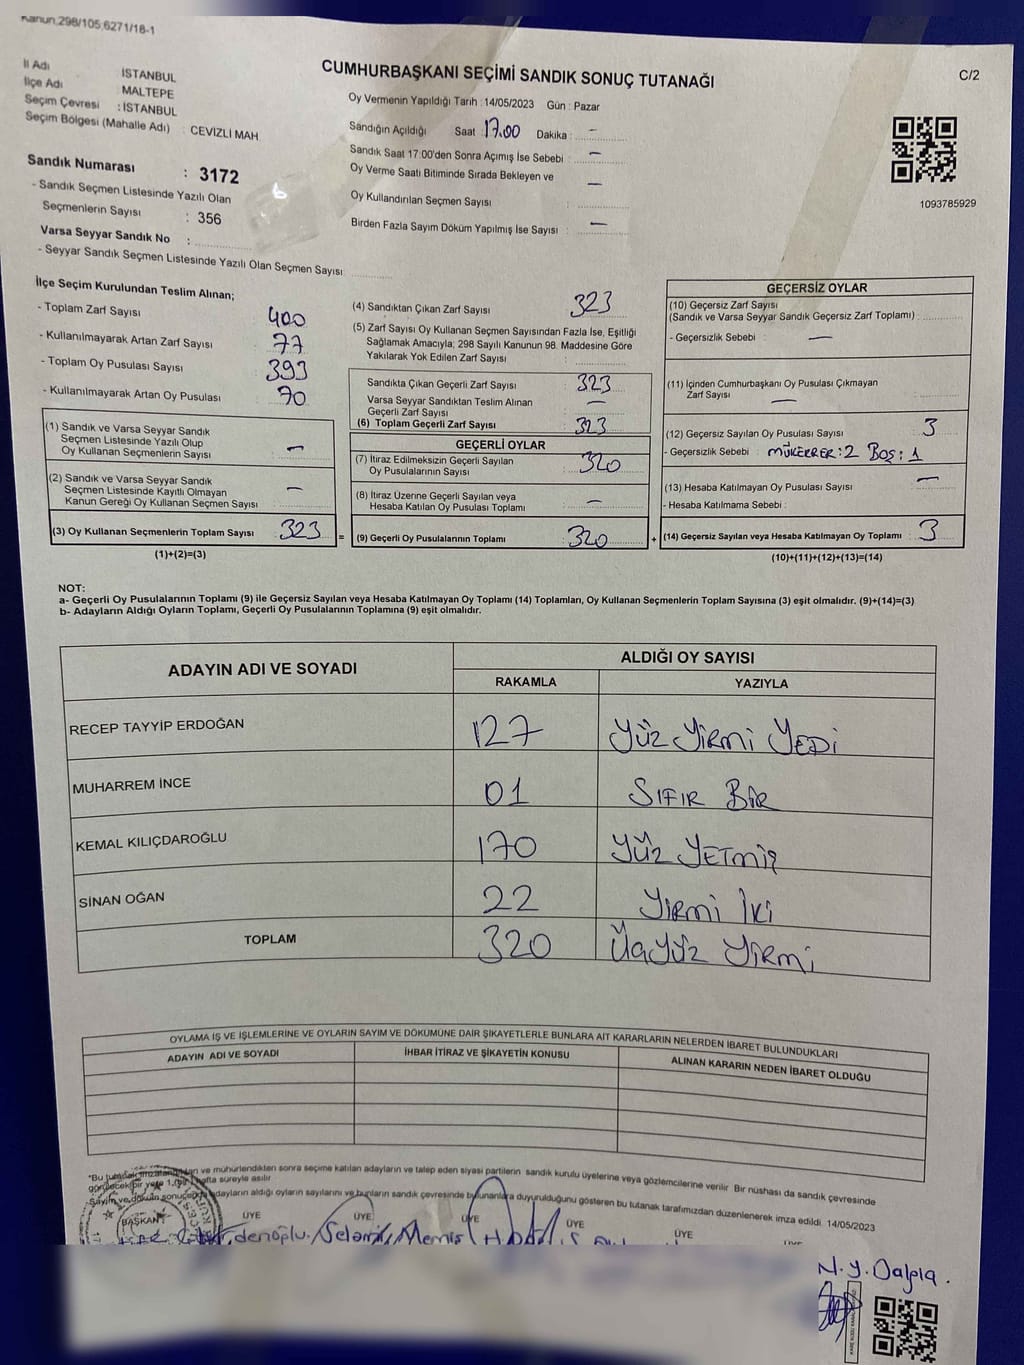 Kanun:298/105;6271/18-1
İl Adı : İSTANBUL
İlçe Adı : MALTEPE
Seçim Çevresi : İSTANBUL
Seçim Bölgesi (Mahalle Adı) : CEVİZLİ MAH
Sandık Numarası : 3172
- Sandık Seçmen Listesinde Yazılı Olan
Seçmenlerin Sayısı : 356
Varsa Seyyar Sandık No :
- Seyyar Sandık Seçmen Listesinde Yazılı Olan Seçmen Sayısı:
CUMHURBAŞKANI SEÇİMİ SANDIK SONUÇ TUTANAĞI
C/2
Oy Vermenin Yapıldığı Tarih : 14/05/2023 Gün : Pazar
Sandığın Açıldığı Saat : 17.00 Dakika : -
Sandık Saat 17:00'den Sonra Açımış İse Sebebi : -
Oy Verme Saati Bitiminde Sırada Bekleyen ve -
Oy Kullandırılan Seçmen Sayısı :
Birden Fazla Sayım Döküm Yapılmış İse Sayısı : -
1093785929
İlçe Seçim Kurulundan Teslim Alınan;
- Toplam Zarf Sayısı : 400
- Kullanılmayarak Artan Zarf Sayısı : 77
- Toplam Oy Pusulası Sayısı : 393
- Kullanılmayarak Artan Oy Pusulası : 70
(1) Sandık ve Varsa Seyyar Sandık
Seçmen Listesinde Yazılı Olup
Oy Kullanan Seçmenlerin Sayısı : -
(2) Sandık ve Varsa Seyyar Sandık
Seçmen Listesinde Kayıtlı Olmayan
Kanun Gereği Oy Kullanan Seçmen Sayısı : -
(3) Oy Kullanan Seçmenlerin Toplam Sayısı : 323 =
(1)+(2)=(3)
(4) Sandıktan Çıkan Zarf Sayısı : 323
(5) Zarf Sayısı Oy Kullanan Seçmen Sayısından Fazla İse, Eşitliği
Sağlamak Amacıyla; 298 Sayılı Kanunun 98. Maddesine Göre
Yakılarak Yok Edilen Zarf Sayısı :
Sandıkta Çıkan Geçerli Zarf Sayısı : 323
Varsa Seyyar Sandıktan Teslim Alınan -
Geçerli Zarf Sayısı
(6) Toplam Geçerli Zarf Sayısı : 323
GEÇERLİ OYLAR
(7) İtiraz Edilmeksizin Geçerli Sayılan
Oy Pusulalarının Sayısı : 320
(8) İtiraz Üzerine Geçerli Sayılan veya
Hesaba Katılan Oy Pusulası Toplamı : -
(9) Geçerli Oy Pusulalarının Toplamı : 320 +
GEÇERSİZ OYLAR
(10) Geçersiz Zarf Sayısı
(Sandık ve Varsa Seyyar Sandık Geçersiz Zarf Toplamı) :
- Geçersizlik Sebebi : -
(11) İçinden Cumhurbaşkanı Oy Pusulası Çıkmayan
Zarf Sayısı : -
(12) Geçersiz Sayılan Oy Pusulası Sayısı : 3
- Geçersizlik Sebebi : MÜKERRER:2 BOŞ:1
(13) Hesaba Katılmayan Oy Pusulası Sayısı : -
- Hesaba Katılmama Sebebi :
(14) Geçersiz Sayılan veya Hesaba Katılmayan Oy Toplamı : 3
(10)+(11)+(12)+(13)=(14)
NOT:
a- Geçerli Oy Pusulalarının Toplamı (9) ile Geçersiz Sayılan veya Hesaba Katılmayan Oy Toplamı (14) Toplamları, Oy Kullanan Seçmenlerin Toplam Sayısına (3) eşit olmalıdır. (9)+(14)=(3)
b- Adayların Aldığı Oyların Toplamı, Geçerli Oy Pusulalarının Toplamına (9) eşit olmalıdır.
ADAYIN ADI VE SOYADI ALDIĞI OY SAYISI
RAKAMLA YAZIYLA
RECEP TAYYİP ERDOĞAN 127 Yüz Yirmi Yedi
MUHARREM İNCE 01 SIFIR BİR
KEMAL KILIÇDAROĞLU 170 Yüz YETMİŞ
SİNAN OĞAN 22 Yirmi İki
TOPLAM 320 Üçyüz Yirmi
OYLAMA İŞ VE İŞLEMLERİNE VE OYLARIN SAYIM VE DÖKÜMÜNE DAİR ŞİKAYETLERLE BUNLARA AİT KARARLARIN NELERDEN İBARET BULUNDUKLARI
ADAYIN ADI VE SOYADI İHBAR İTİRAZ VE ŞİKAYETİN KONUSU ALINAN KARARIN NEDEN İBARET OLDUĞU
*Bu tutanak ve mühürlendikten sonra seçime katılan adayların ve talep eden siyasi partilerin sandık kurulu üyelerine veya gözlemcilerine verilir Bir nüshası da sandık çevresinde
görülecek bir yere 1 hafta süreyle asılır
Sayım ve döküm adayların aldığı oyların sayılarını ve bunların sandık çevresinde bulunanlara duyurulduğunu gösteren bu tutanak tarafımızdan düzenlenerek imza edildi. 14/05/2023
BAŞKAN ÜYE ÜYE ÜYE ÜYE ÜYE
Selami Memiş